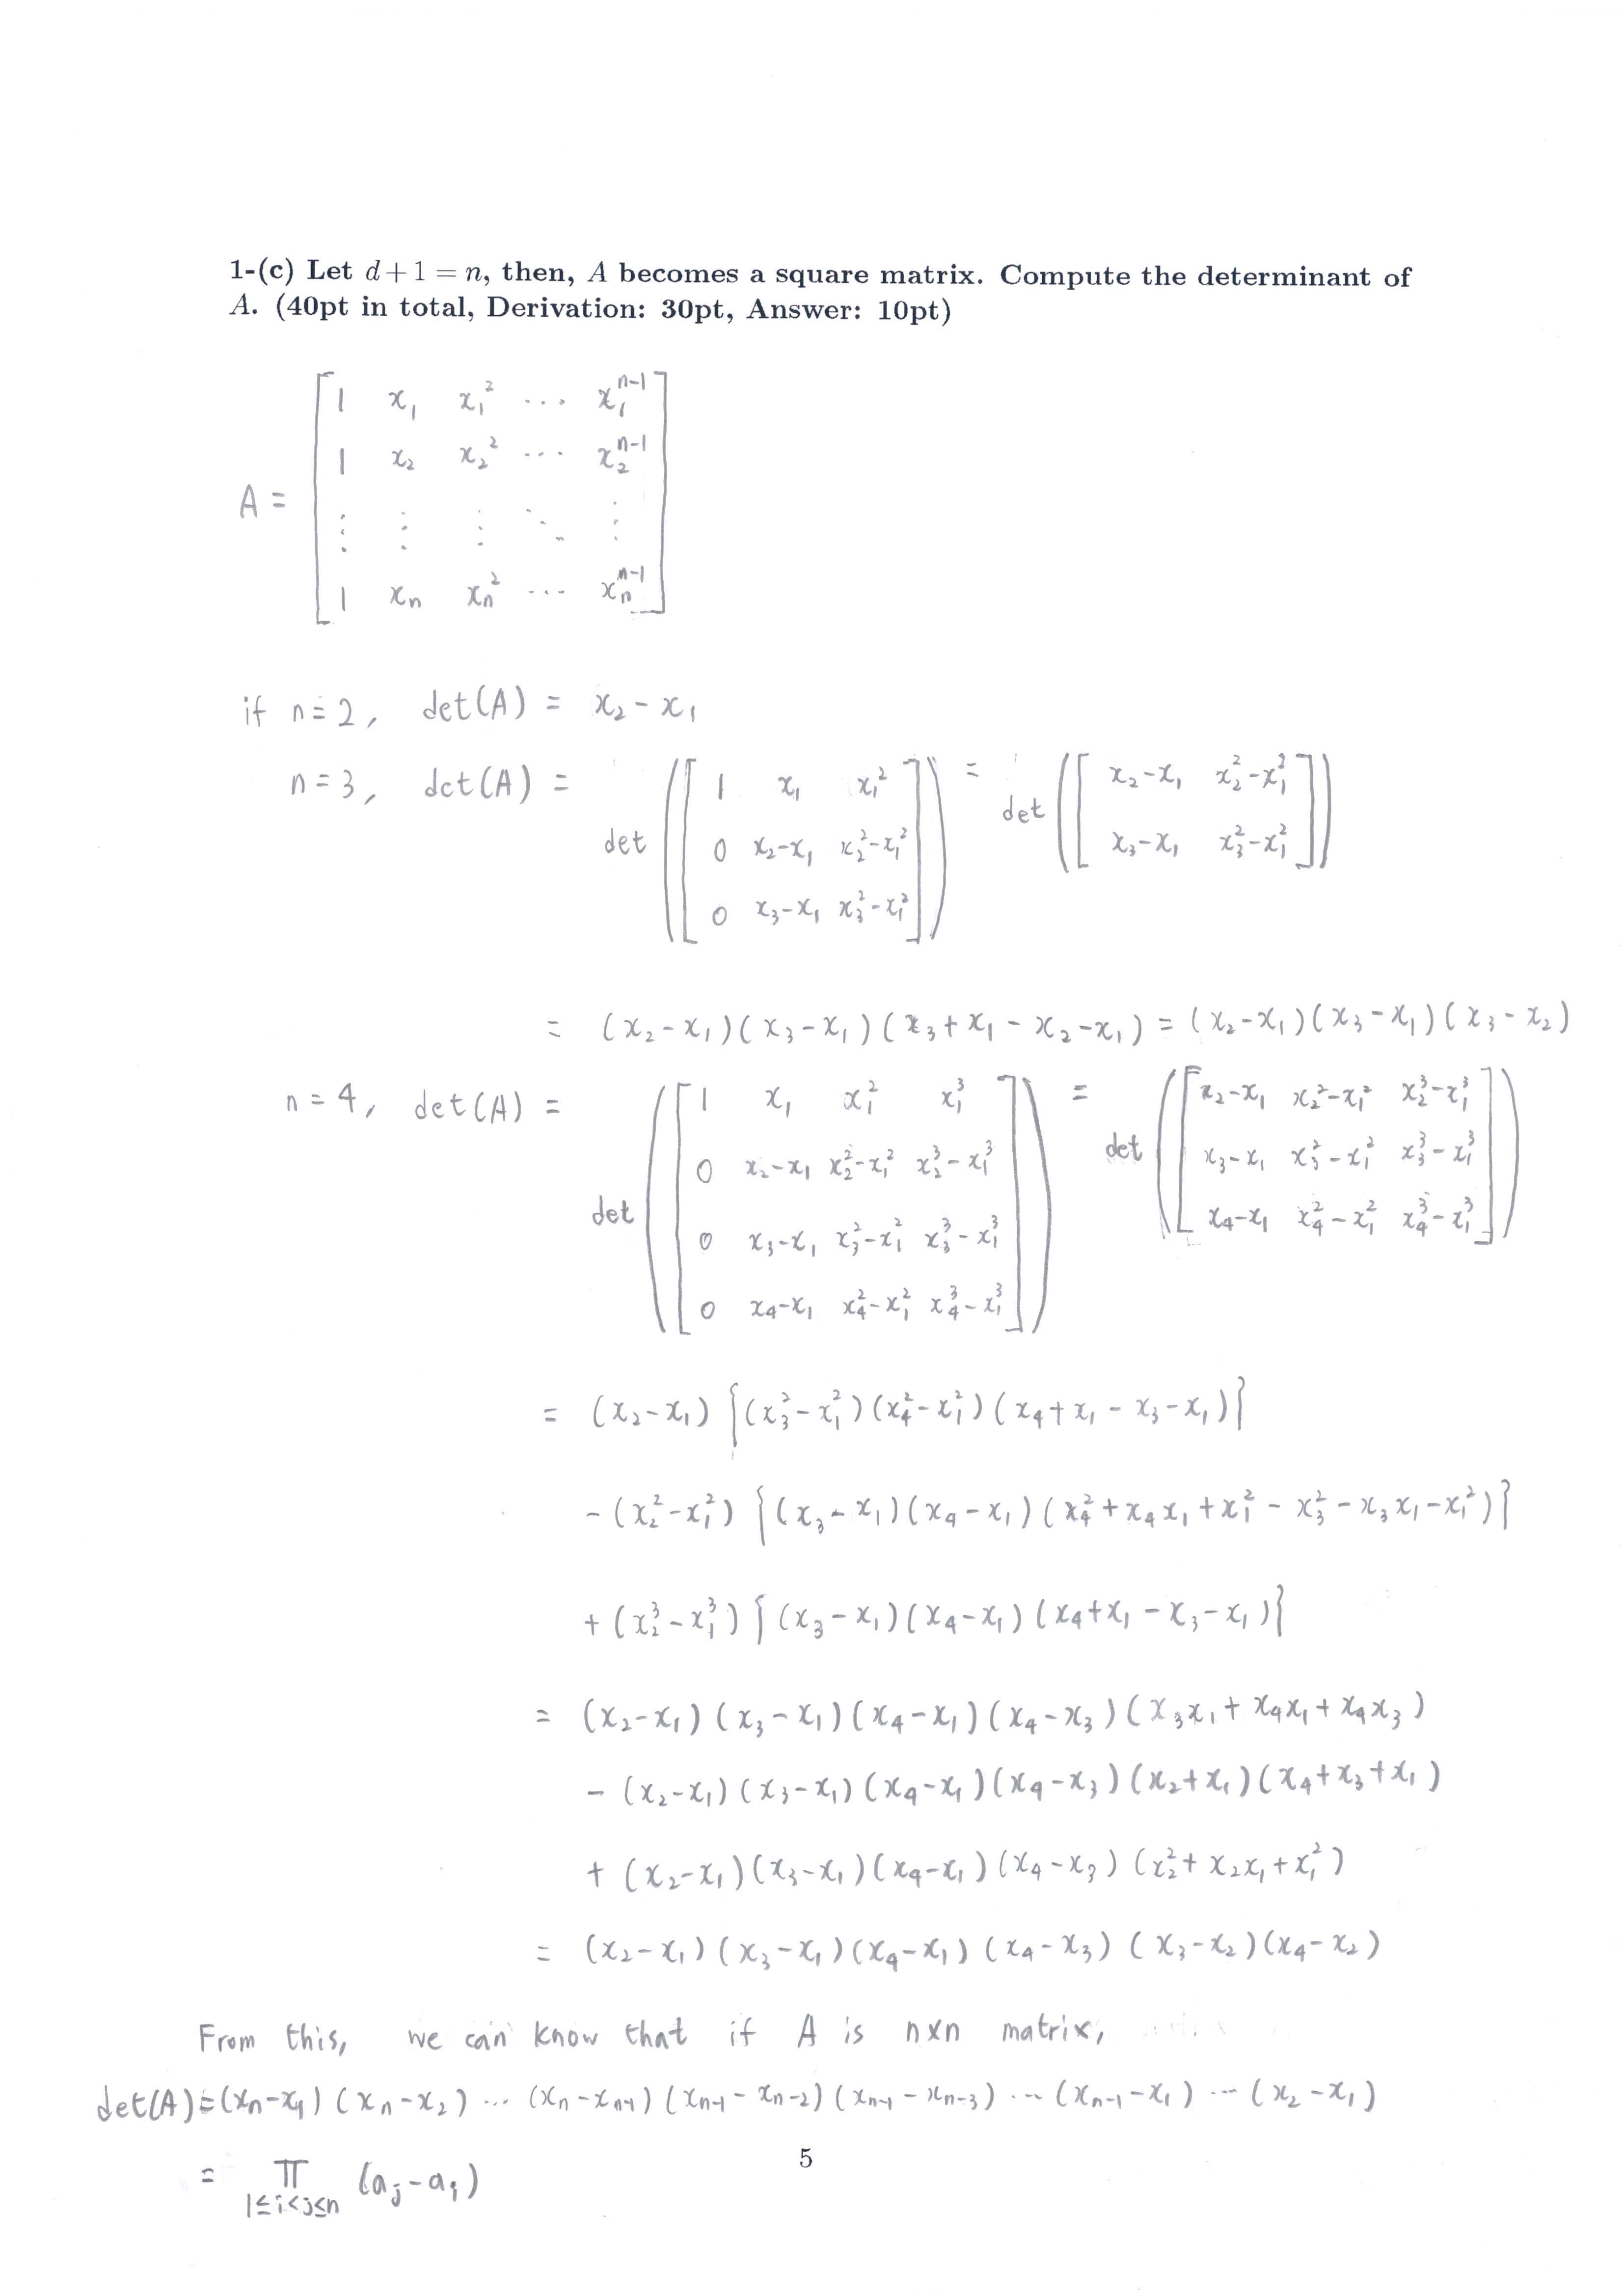 1-(c) Let d+1 = n, then, A becomes a square matrix. Compute the determinant of
A. (40pt in total, Derivation: 30pt, Answer: 10pt)
A = [ 1 x₁ x₁² ⋯ x₁ⁿ⁻¹
1 x₂ x₂² ⋯ x₂ⁿ⁻¹
⋮ ⋮ ⋮ ⋱ ⋮
1 xₙ xₙ² ⋯ xₙⁿ⁻¹ ]
if n=2, det(A) = x₂ - x₁
n=3, det(A) = det([ 1 x₁ x₁²
0 x₂-x₁ x₂²-x₁²
0 x₃-x₁ x₃²-x₁² ]) = det([ x₂-x₁ x₂²-x₁²
x₃-x₁ x₃²-x₁² ])
= (x₂-x₁)(x₃-x₁)(x₃+x₁-x₂-x₁) = (x₂-x₁)(x₃-x₁)(x₃-x₂)
n=4, det(A) = det([ 1 x₁ x₁² x₁³
0 x₂-x₁ x₂²-x₁² x₂³-x₁³
0 x₃-x₁ x₃²-x₁² x₃³-x₁³
0 x₄-x₁ x₄²-x₁² x₄³-x₁³ ]) = det([ x₂-x₁ x₂²-x₁² x₂³-x₁³
x₃-x₁ x₃²-x₁² x₃³-x₁³
x₄-x₁ x₄²-x₁² x₄³-x₁³ ])
= (x₂-x₁) {(x₃²-x₁²)(x₄²-x₁²)(x₄+x₁-x₃-x₁)}
- (x₂²-x₁²) {(x₃-x₁)(x₄-x₁)(x₄²+x₄x₁+x₁²-x₃²-x₃x₁-x₁²)}
+ (x₂³-x₁³) {(x₃-x₁)(x₄-x₁)(x₄+x₁-x₃-x₁)}
= (x₂-x₁)(x₃-x₁)(x₄-x₁)(x₄-x₃)(x₃x₁+x₄x₁+x₄x₃)
- (x₂-x₁)(x₃-x₁)(x₄-x₁)(x₄-x₃)(x₂+x₁)(x₄+x₃+x₁)
+ (x₂-x₁)(x₃-x₁)(x₄-x₁)(x₄-x₃)(x₂²+x₂x₁+x₁²)
= (x₂-x₁)(x₃-x₁)(x₄-x₁)(x₄-x₃)(x₃-x₂)(x₄-x₂)
From this, we can know that if A is n×n matrix,
det(A)=(xₙ-x₁)(xₙ-x₂)⋯(xₙ-xₙ₋₁)(xₙ₋₁-xₙ₋₂)(xₙ₋₁-xₙ₋₃)⋯(xₙ₋₁-x₁)⋯(x₂-x₁)
= Π 1≤i<j≤n (aⱼ-aᵢ)
5